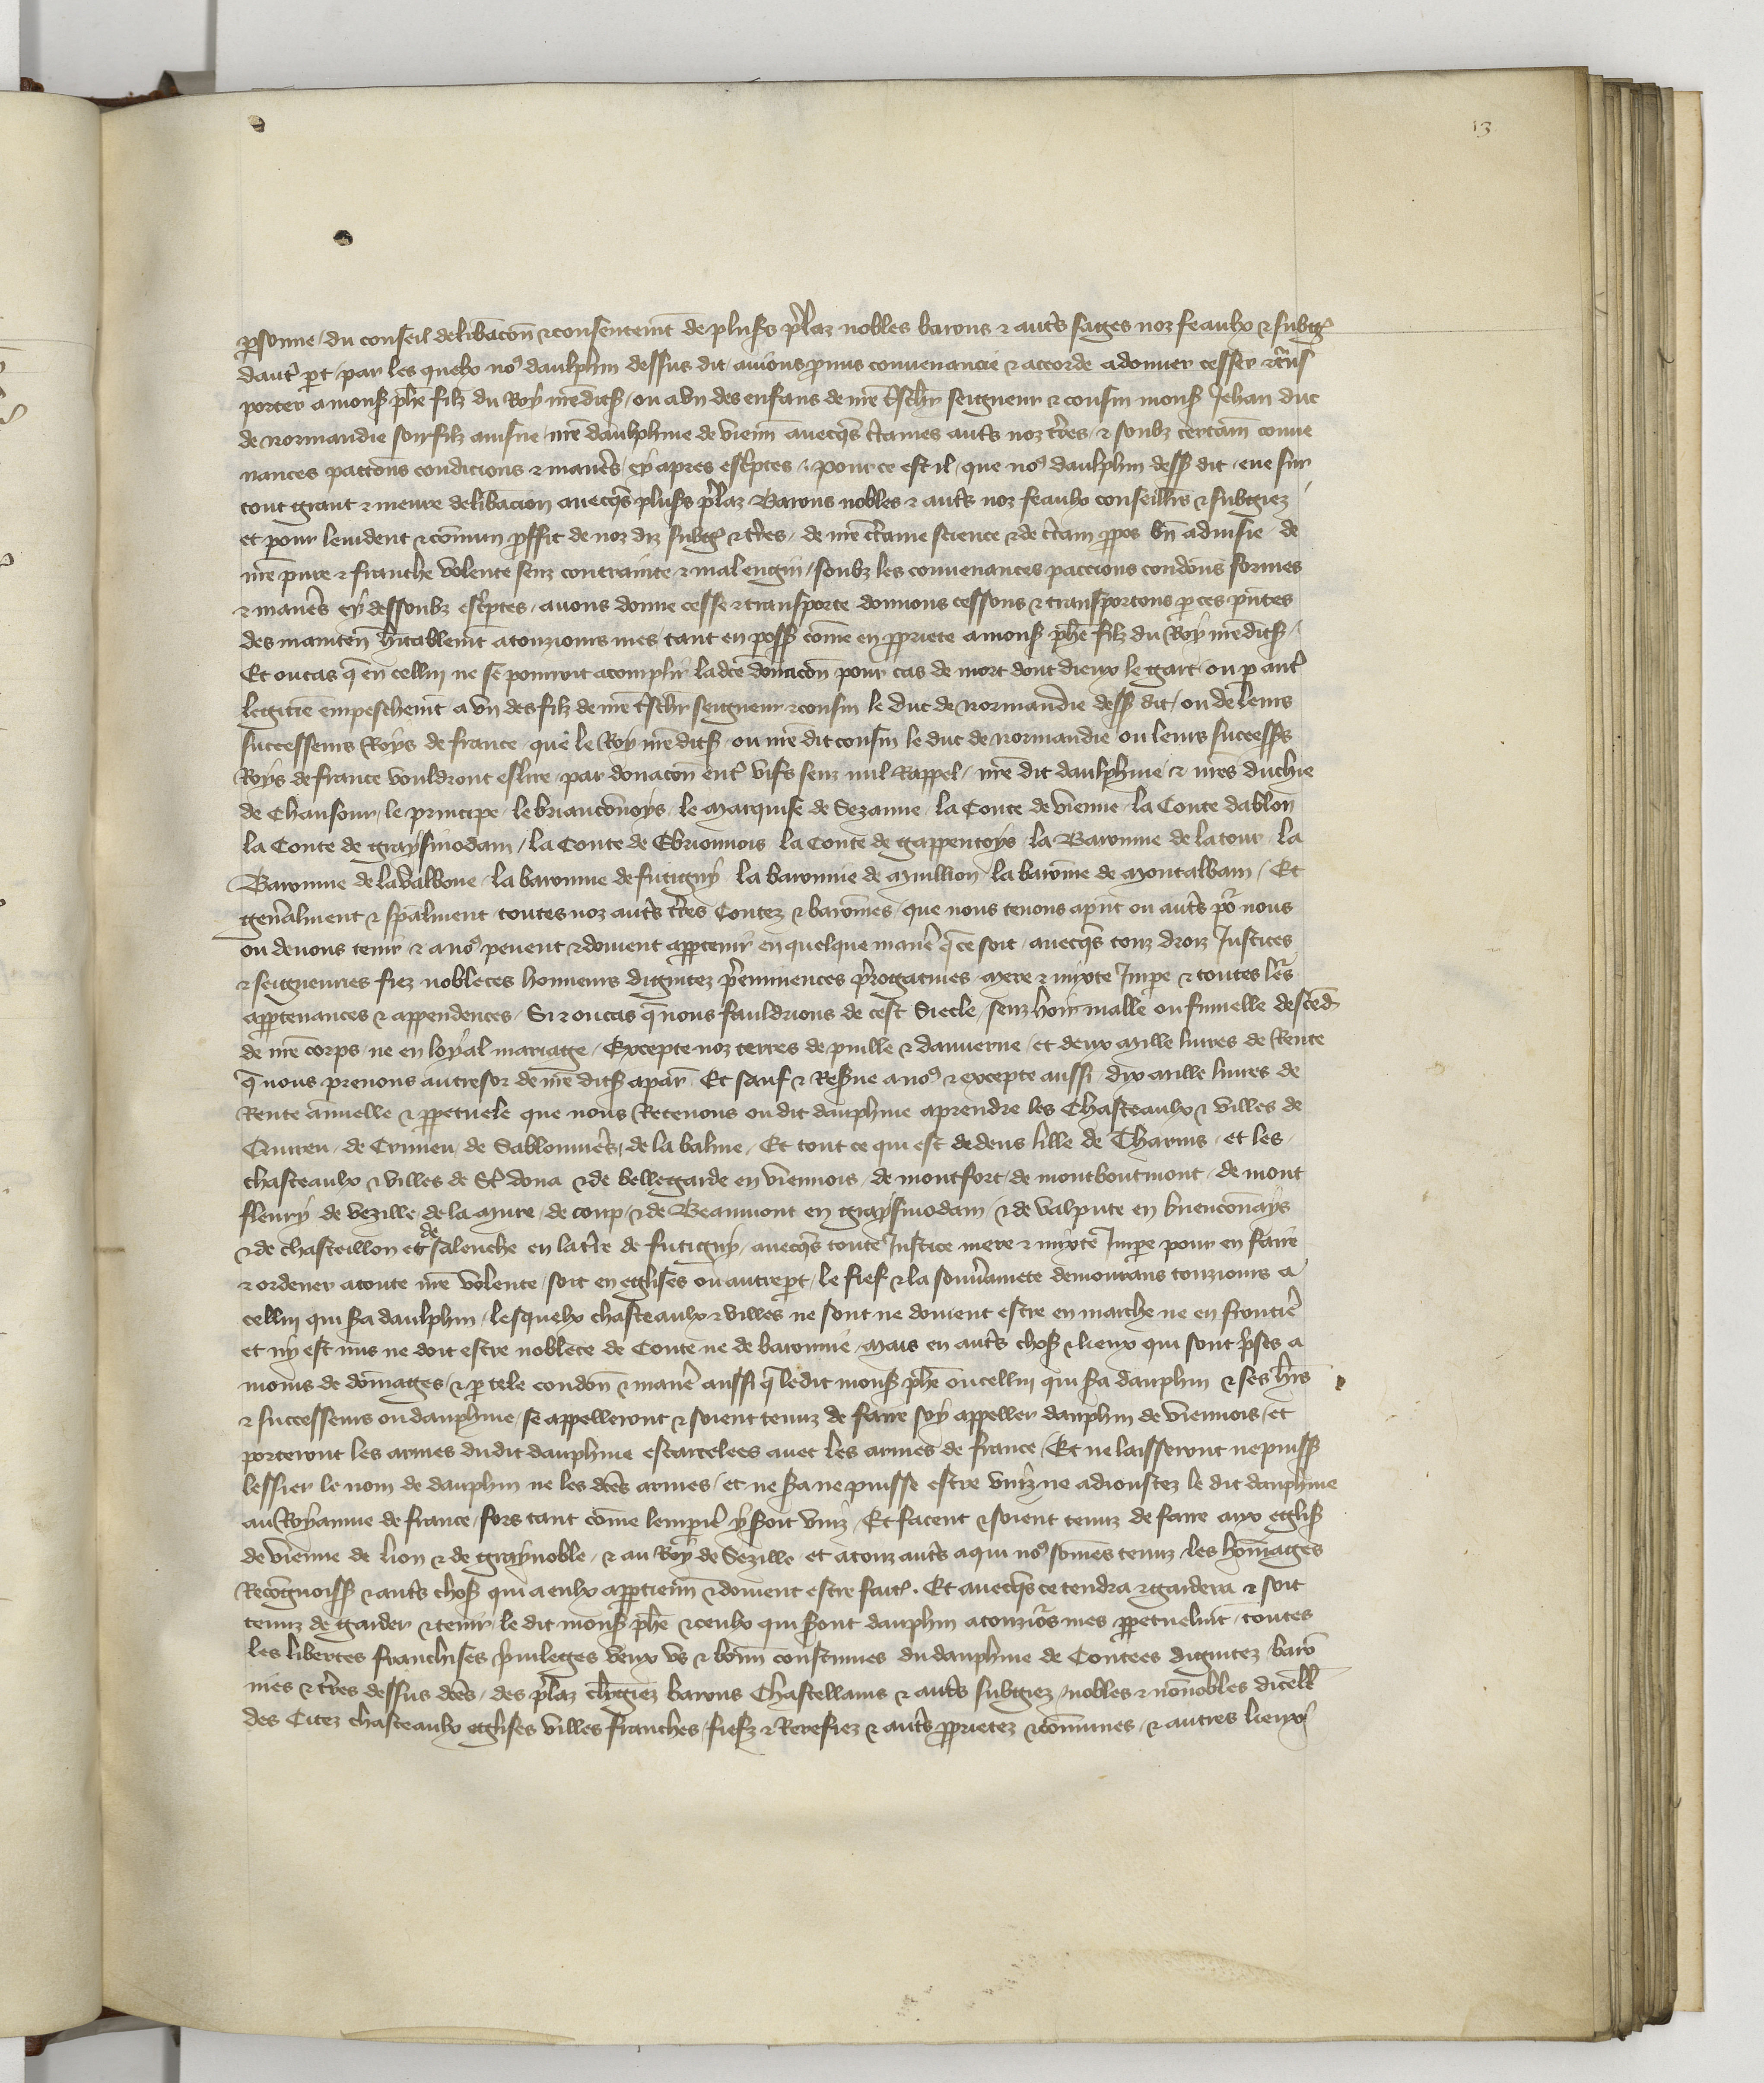 13
psonne / du conseil deliberacon & consentemt de plusrs prlaz nobles barons & autrs sages noz feaulx & subgz
dautr pt / par les quelx nos daulphin dessus dit avions promis convenancie & accorde a donner cesser & trans
porter a mons phe filz du Roy mre dits / ou a un des enfans de nre tschr seigneur & cousin mons Jehan duc
de normandie son filz ainsne / nre daulphine de vienn avecqs ctaines autrs noz trres / & soubz certain conve
nances pactions condicions & manrs cy apres escptes / pour ce est il / que nos daulphin dess dit / eue sur
tout grant & meure delibacion avecqs plusrs prlaz Barons nobles & autrs noz feaulx conseillrs & subgiez
et pour levident & comun proffit de noz diz subgz & trres / de nre ctaine science & de ctain ppos bn advisie / de
nre pure & franche volente senz contrainte & mal engin / soubz les convenances paccions condons formes
& manrs cy dessoubz escptes / avons donne cesse & transporte donnons cessons & transportons p ces pntes
des mainten hritablemt a touziours mes / tant en poss come en ppriete a mons phe filz du Roy nre dits /
Et ou cas q en cellui ne se pourroit acomplir ladce donacon pour cas de mort dont dieux le gart / ou p autr
legitie empeschemt a un des filz de nre tschr seigneur & cousin le duc de normandie dess dit / ou de leurs
successeurs Roys de france / que le Roy nre dits / ou nre dit cousin le duc de normandie ou leurs success
Roys de france vouldront eslire / par donacon entr vifs senz nul Rappel / nre dit daulphine & nres duchie
de Chansour / le principe / le brianconoys / le marquise de Sezanne / la Conte de vienne / la Conte dablon
la Conte de graysinodam / la Conte de Ebrionnois la Conte de gappencoys / la Baronnie de la tour / la
Baronnie de la Valbone / la baronnie de fucigny / la baronnie de Muillion / la baronie de Montalbam / Et
genralment & spalment toutes noz autrs trres Contez & baronies / que nous tenons a pnt ou autrs pour nous
ou devons tenir / & a nos pevent & doivent apptenir en quelque manre q ce soit / avecqs touz droiz Justices
& seigneuries fiez nobleces honneurs dignitez preminences prrogatives mere & mixte Impe & toutes lrs
apptenances & appendences / Si & ou cas q nous fauldrions de cest Siecle / senz hoir malle ou fumelle descend
de nre corps / ne en loyal mariage / Excepte noz terres de puille & dauverne / et deux mille livres de Rente
q nous prenons au tresor de nre dits a paris Et sauf & Resrve a nos & excepte aussi dix mille livres de
Rente annuelle & ppetuele que nous Retenons ou dit dauphine a prendre les Chasteaulx & villes de
Quireu / de Crimeu / de Sablonnires / de la balme / Et tout ce qui est dedens lille de Charuis / et les /
chasteaulx & villes de St dona & de bellegarde en viennois / de montfort / de montboutmont / de mont
fleury de vezille / de la Mure / de coup / & de Beaumont en graysinodam / & de valpute en brienconays
& de chasteillon et de salenche en la trre de fucigny / avecqs toute Justice mere & mixte Impe pour en faire
& ordener a toute nre volente / soit en eglises ou autre pt / le fief & la souvrainete demourans touziours a
cellui qui sra daulphin / lesquelx chasteaulx & villes ne sont ne doivent estre en marche ne en frontier
et ny est mis ne doit estre noblece de Conte ne de baronnie / Mais en autrs choss & lieux qui sont prses a
moins de domages / & p tele condon & manre aussi q ledit mons phe ou cellui qui sra dauphin & ses hrs
& successeurs ou dauphine / se appelleront & soient tenuz de faire soy appeller dauphin de viennois / et
porteront les armes dudit dauphine escartelees avec les armes de france / Et ne laisseront ne puiss
lessier le nom de dauphin ne les dces armes / et ne sra ne puisse estre uniz ne adioustez le dit dauphine
au Royaume de france / fors tant come lempire y seroit uniz / Et facent & soient tenuz de faire aux eglis
de vienne de lion & de graynoble / & au Roy de Sezille et a touz autrs a qui nos somes tenuz / les homages
Recognoiss & autrs choss qui a eulx apptienn & doivent estre faitz . Et avecqs ce tendra & gardera & soit
tenuz de garder & tenir / le dit mons phe & ceulx qui sront dauphin a touziors mes ppetuelmt / toutes
les libertes franchises privileges veux us & bonn coustumes du dauphine de Contees dignitez baro
nies & trres dessus dces / des prlaz clergiez barons Chastellains & autrs subgiez / nobles & non nobles dicell
des Citez chasteaulx eglises villes franches / fiefz & Rerefiez & autrs pprietez & comunes / & autres lieux